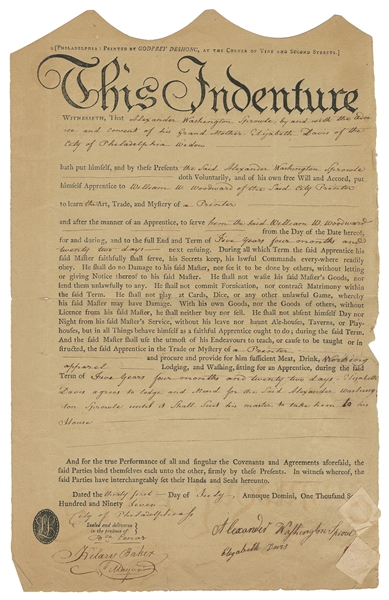 [PHILADELPHIA: PRINTED BY GODFREY DESHONG, AT THE CORNER OF VINE AND SECOND STREETS.]
This Indenture
WITNESSETH, THAT Alexander Washington Sproule, by and with the
and consent of his Grand Mother Elizabeth Davis of the
City of Philadelphia Widow
hath put himself, and by these Presents the Said Alexander Washington Sproule
doth Voluntarily, and of his own free Will and Accord, put
himself Apprentice to William W. Woodward of the Said City Printer
to learn the Art, Trade, and Mystery of a Printer
and after the manner of an Apprentice, to serve him the said William W. Woodward
from the Day of the Date hereof,
for and during, and to the full End and Term of Five years four months and
twenty two days next ensuing. During all which Term the Apprentice his
said Master faithfully shall serve, his Secrets keep, his lawful Commands every-where readily
obey. He shall do no Damage to his said Master, nor see it to be done by others, without letting
or giving Notice thereof to his said Master. He shall not waste his said Master's Goods, nor
lend them unlawfully to any. He shall not commit Fornication, nor contract Matrimony within
the said Term. He shall not play at Cards, Dice, or any other unlawful Game, whereby
his said Master may have Damage. With his own Goods, nor the Goods of others, without
Licence from his said Master, he shall neither buy nor sell. He shall not absent himself Day nor
Night from his said Master's Service, without his leave nor haunt Ale-houses, Taverns, or Play-
houses, but in all Things behave himself as a faithful Apprentice ought to do; during the said Term.
And the said Master shall use the utmost of his Endeavours to teach, or cause to be taught or in-
structed, the said Apprentice in the Trade or Mystery of a Printer
and procure and provide for him sufficient Meat, Drink, Working
apparel Lodging, and Washing, fitting for an Apprentice, during the said
Term of Five years four months and twenty two days. Elizabeth
Davis agrees to lodge and for the Said Alexander Washing-
ton Sproule until it Shall Suit his master to take him to his
House
And for the true Performance of all and singular the Covenants and Agreements aforesaid, the
said Parties bind themselves each unto the other, firmly by these Presents. In witness whereof, the
said Parties have interchangeably set their Hands and Seals hereunto.
Dated the thirty first Day of July Annoque Domini, One Thousand Seven
Hundred and Ninety Seven
City of Philadelphia ss
Sealed and delivered
in the presence of
Alexander Washington Sproul
Hilary Baker
Elizabeth Davis